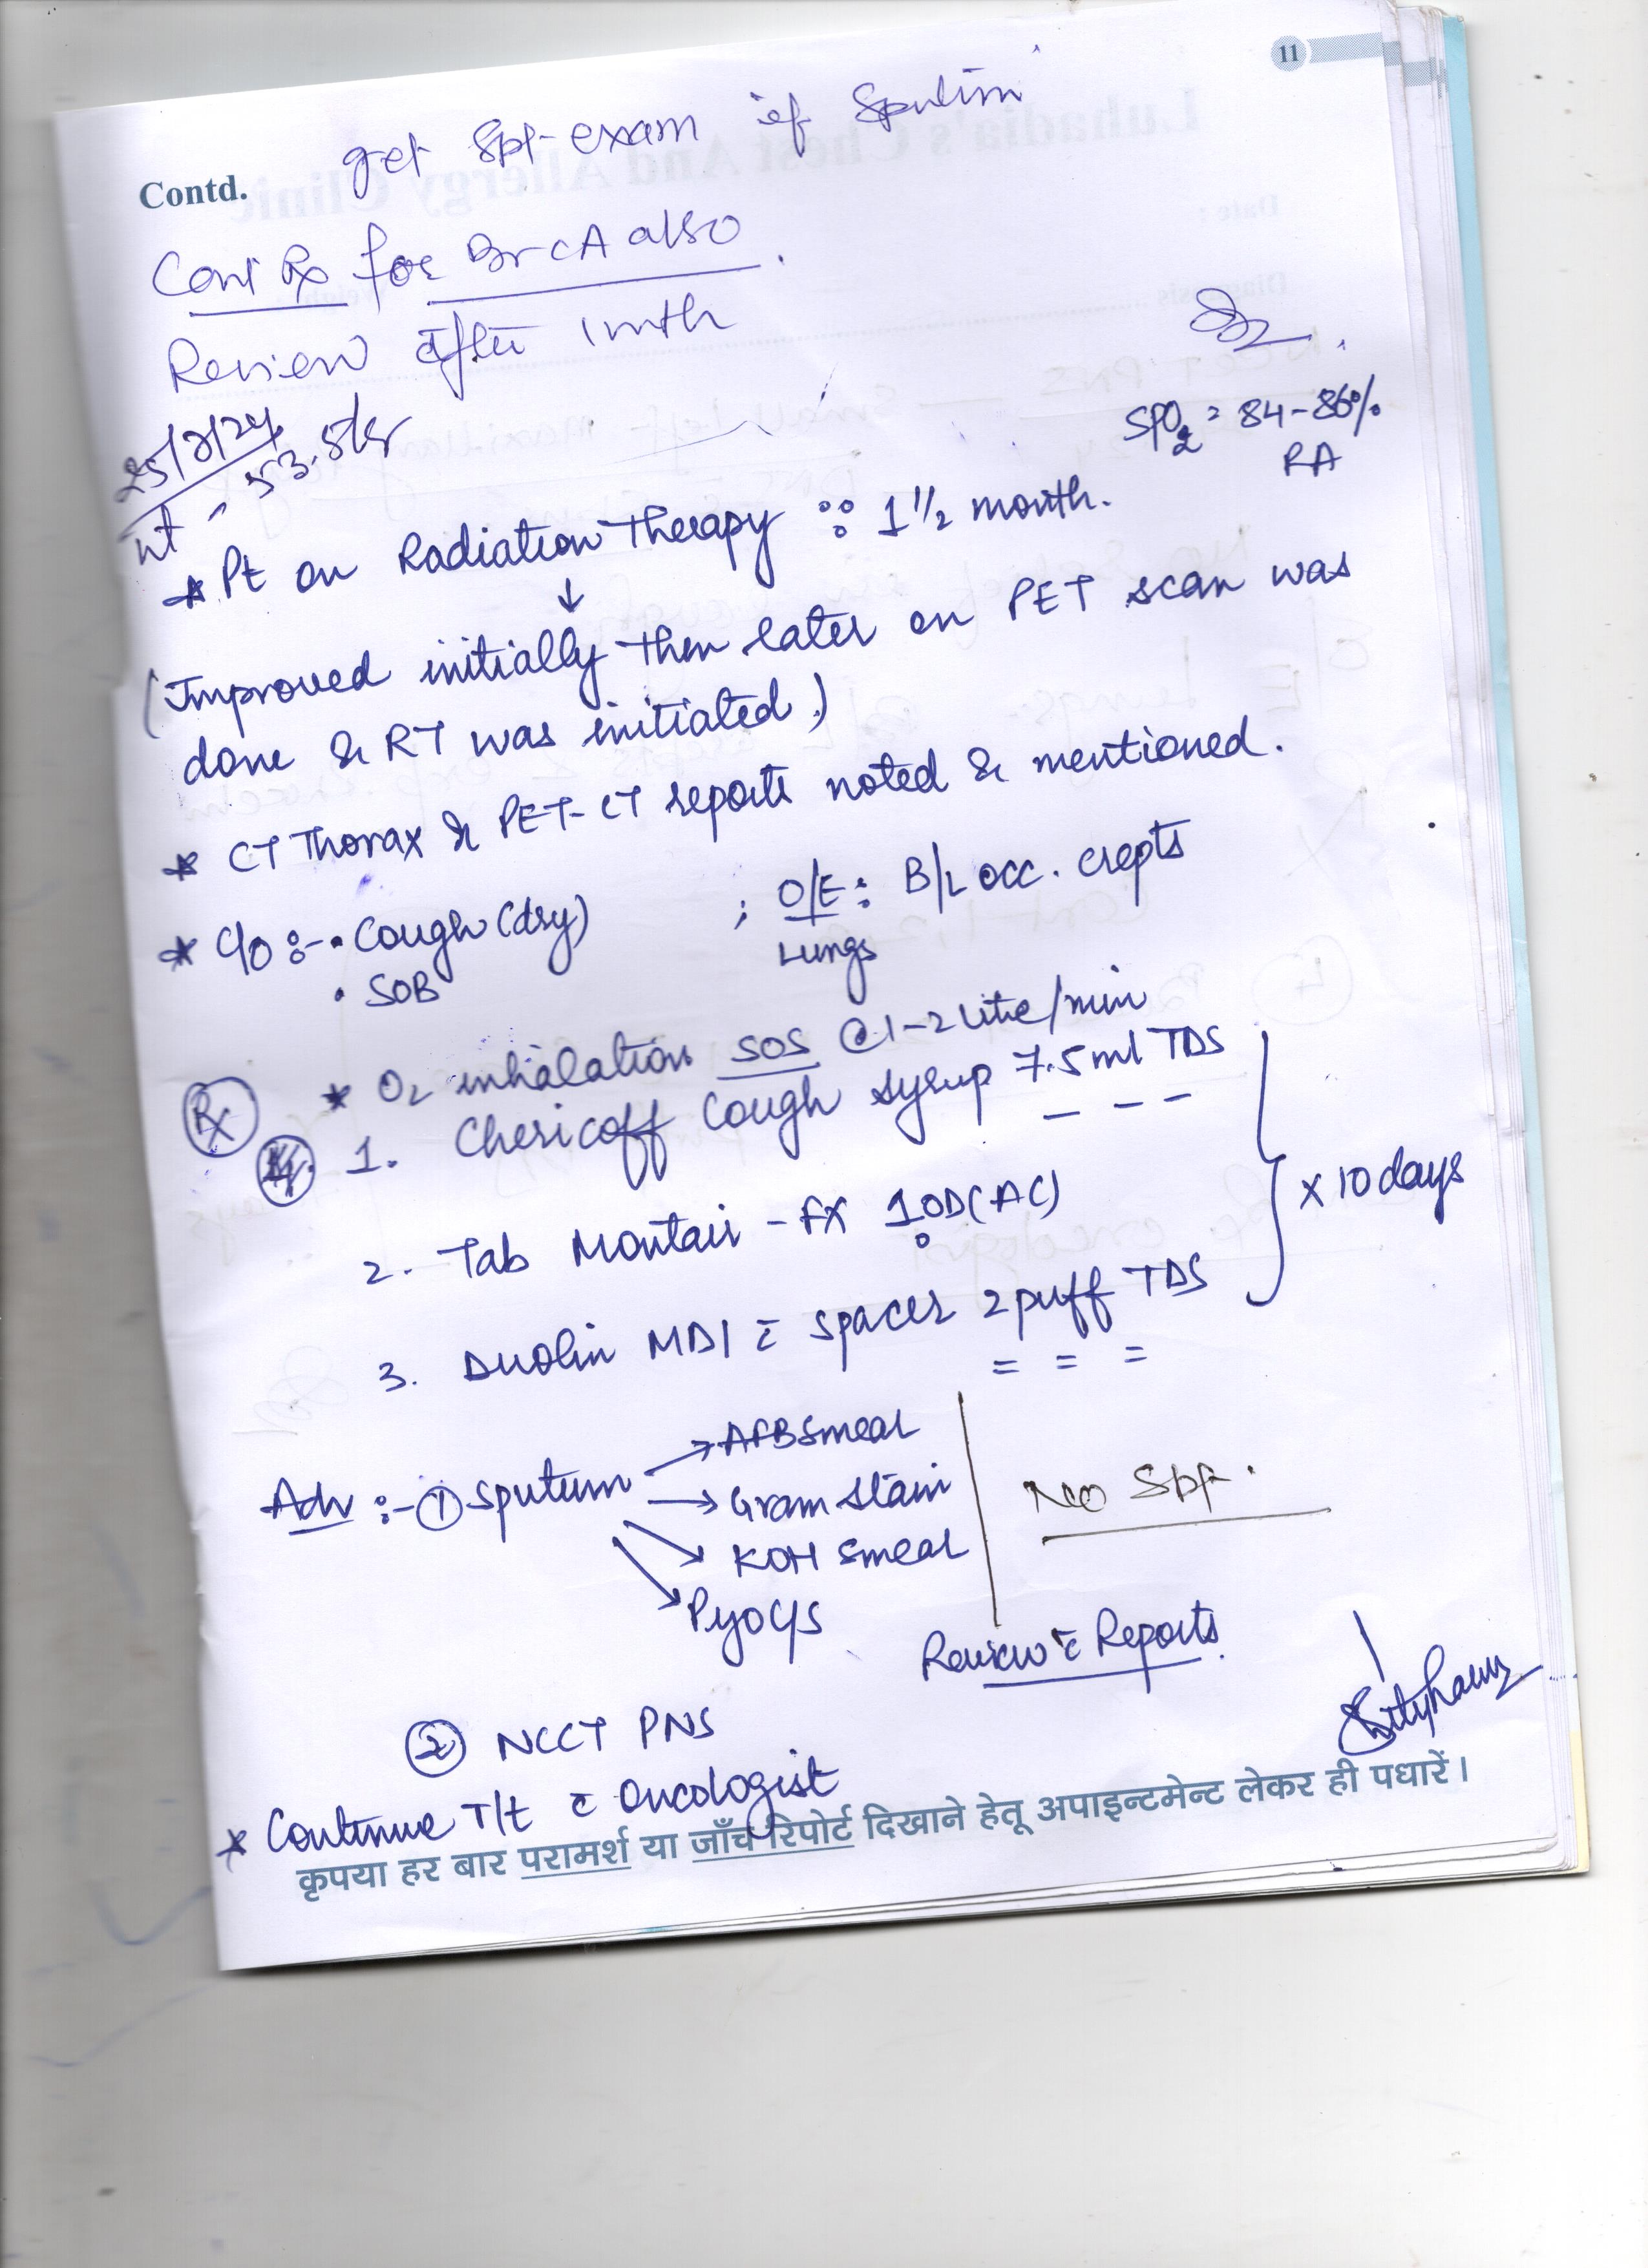 11
get Spt-exam if Sputim
Contd.
Cont Rx for Br CA also
Review after 1 mth
25/7/24
SPO2 = 84-86%
RA
wt - 53.5kg
* Pt on Radiation Therapy :: 1 1/2 month.
↓
(Improved initially then later on PET scan was
done & RT was initiated.)
* CT Thorax & PET-CT reports noted & mentioned.
* C/O :- • Cough (dry) ; O/E : B/L occ. crepts
• SOB Lungs
Rx * O2 inhalation SOS @ 1-2 litre/min
1. Chericoff Cough syrup 7.5ml TDS
2. Tab Montair - FX 1 OD (AC)
x 10 days
3. Duolin MDI c̄ spacer 2 puff TDS
= = =
Adv :- ① Sputum → AFB smear
→ Gram stain
→ KOH smear
→ Pyo C/S
No Spt.
Review c̄ Reports.
② NCCT PNS
* Continue T/t c̄ Oncologist
कृपया हर बार परामर्श या जाँच रिपोर्ट दिखाने हेतू अपाइन्टमेन्ट लेकर ही पधारें।